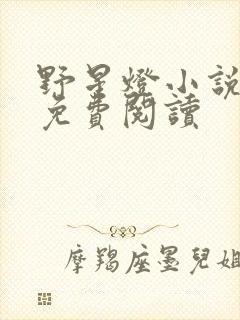 野星燈小說
免費閱讀
摩羯座墨兒姐